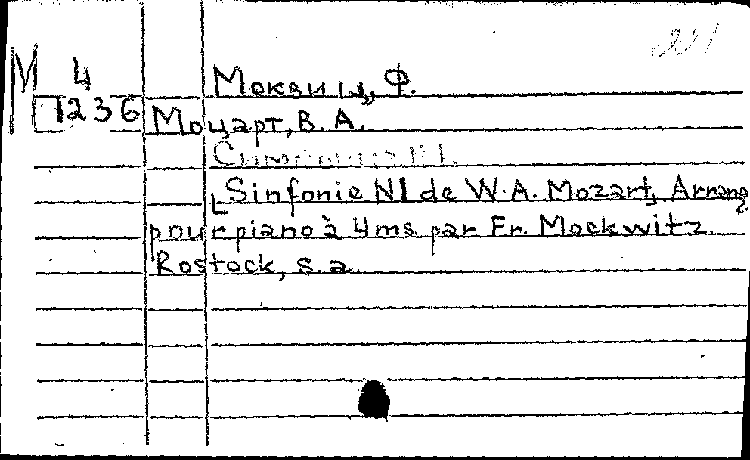 М 4 Моквиц, Ф.
1236 Моцарт, В. А.
Симфония N 1.
[Sinfonie N1 de W. A. Mozart, Arrang
pour piano à 4ms par Fr. Mockwitz.
Rostock, s. a.